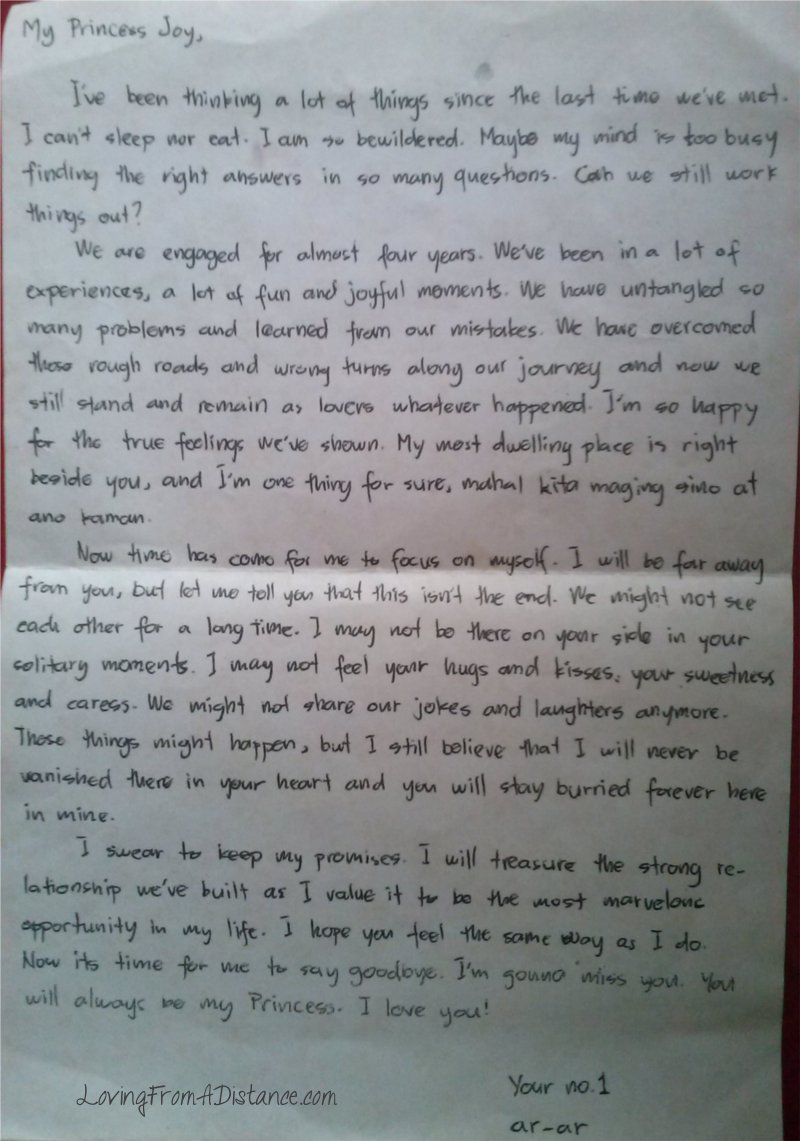 My Princess Joy,
I've been thinking a lot of things since the last time we've met.
I can't sleep nor eat. I am so bewildered. Maybe my mind is too busy
finding the right answers in so many questions. Can we still work
things out?
We are engaged for almost four years. We've been in a lot of
experiences, a lot of fun and joyful moments. We have untangled so
many problems and learned from our mistakes. We have overcomed
those rough roads and wrong turns along our journey and now we
still stand and remain as lovers whatever happened. I'm so happy
for the true feelings we've shown. My most dwelling place is right
beside you, and I'm one thing for sure, mahal kita maging sino at
ano kaman.
Now time has come for me to focus on myself. I will be far away
from you, but let me tell you that this isn't the end. We might not see
each other for a long time. I may not be there on your side in your
solitary moments. I may not feel your hugs and kisses, your sweetness
and caress. We might not share our jokes and laughters anymore.
Those things might happen, but I still believe that I will never be
vanished there in your heart and you will stay burried forever here
in mine.
I swear to keep my promises. I will treasure the strong re-
lationship we've built as I value it to be the most marvelous
opportunity in my life. I hope you feel the same way as I do.
Now its time for me to say goodbye. I'm gonna miss you. You
will always be my Princess. I love you!
Your no.1
ar-ar
LovingFromADistance.com